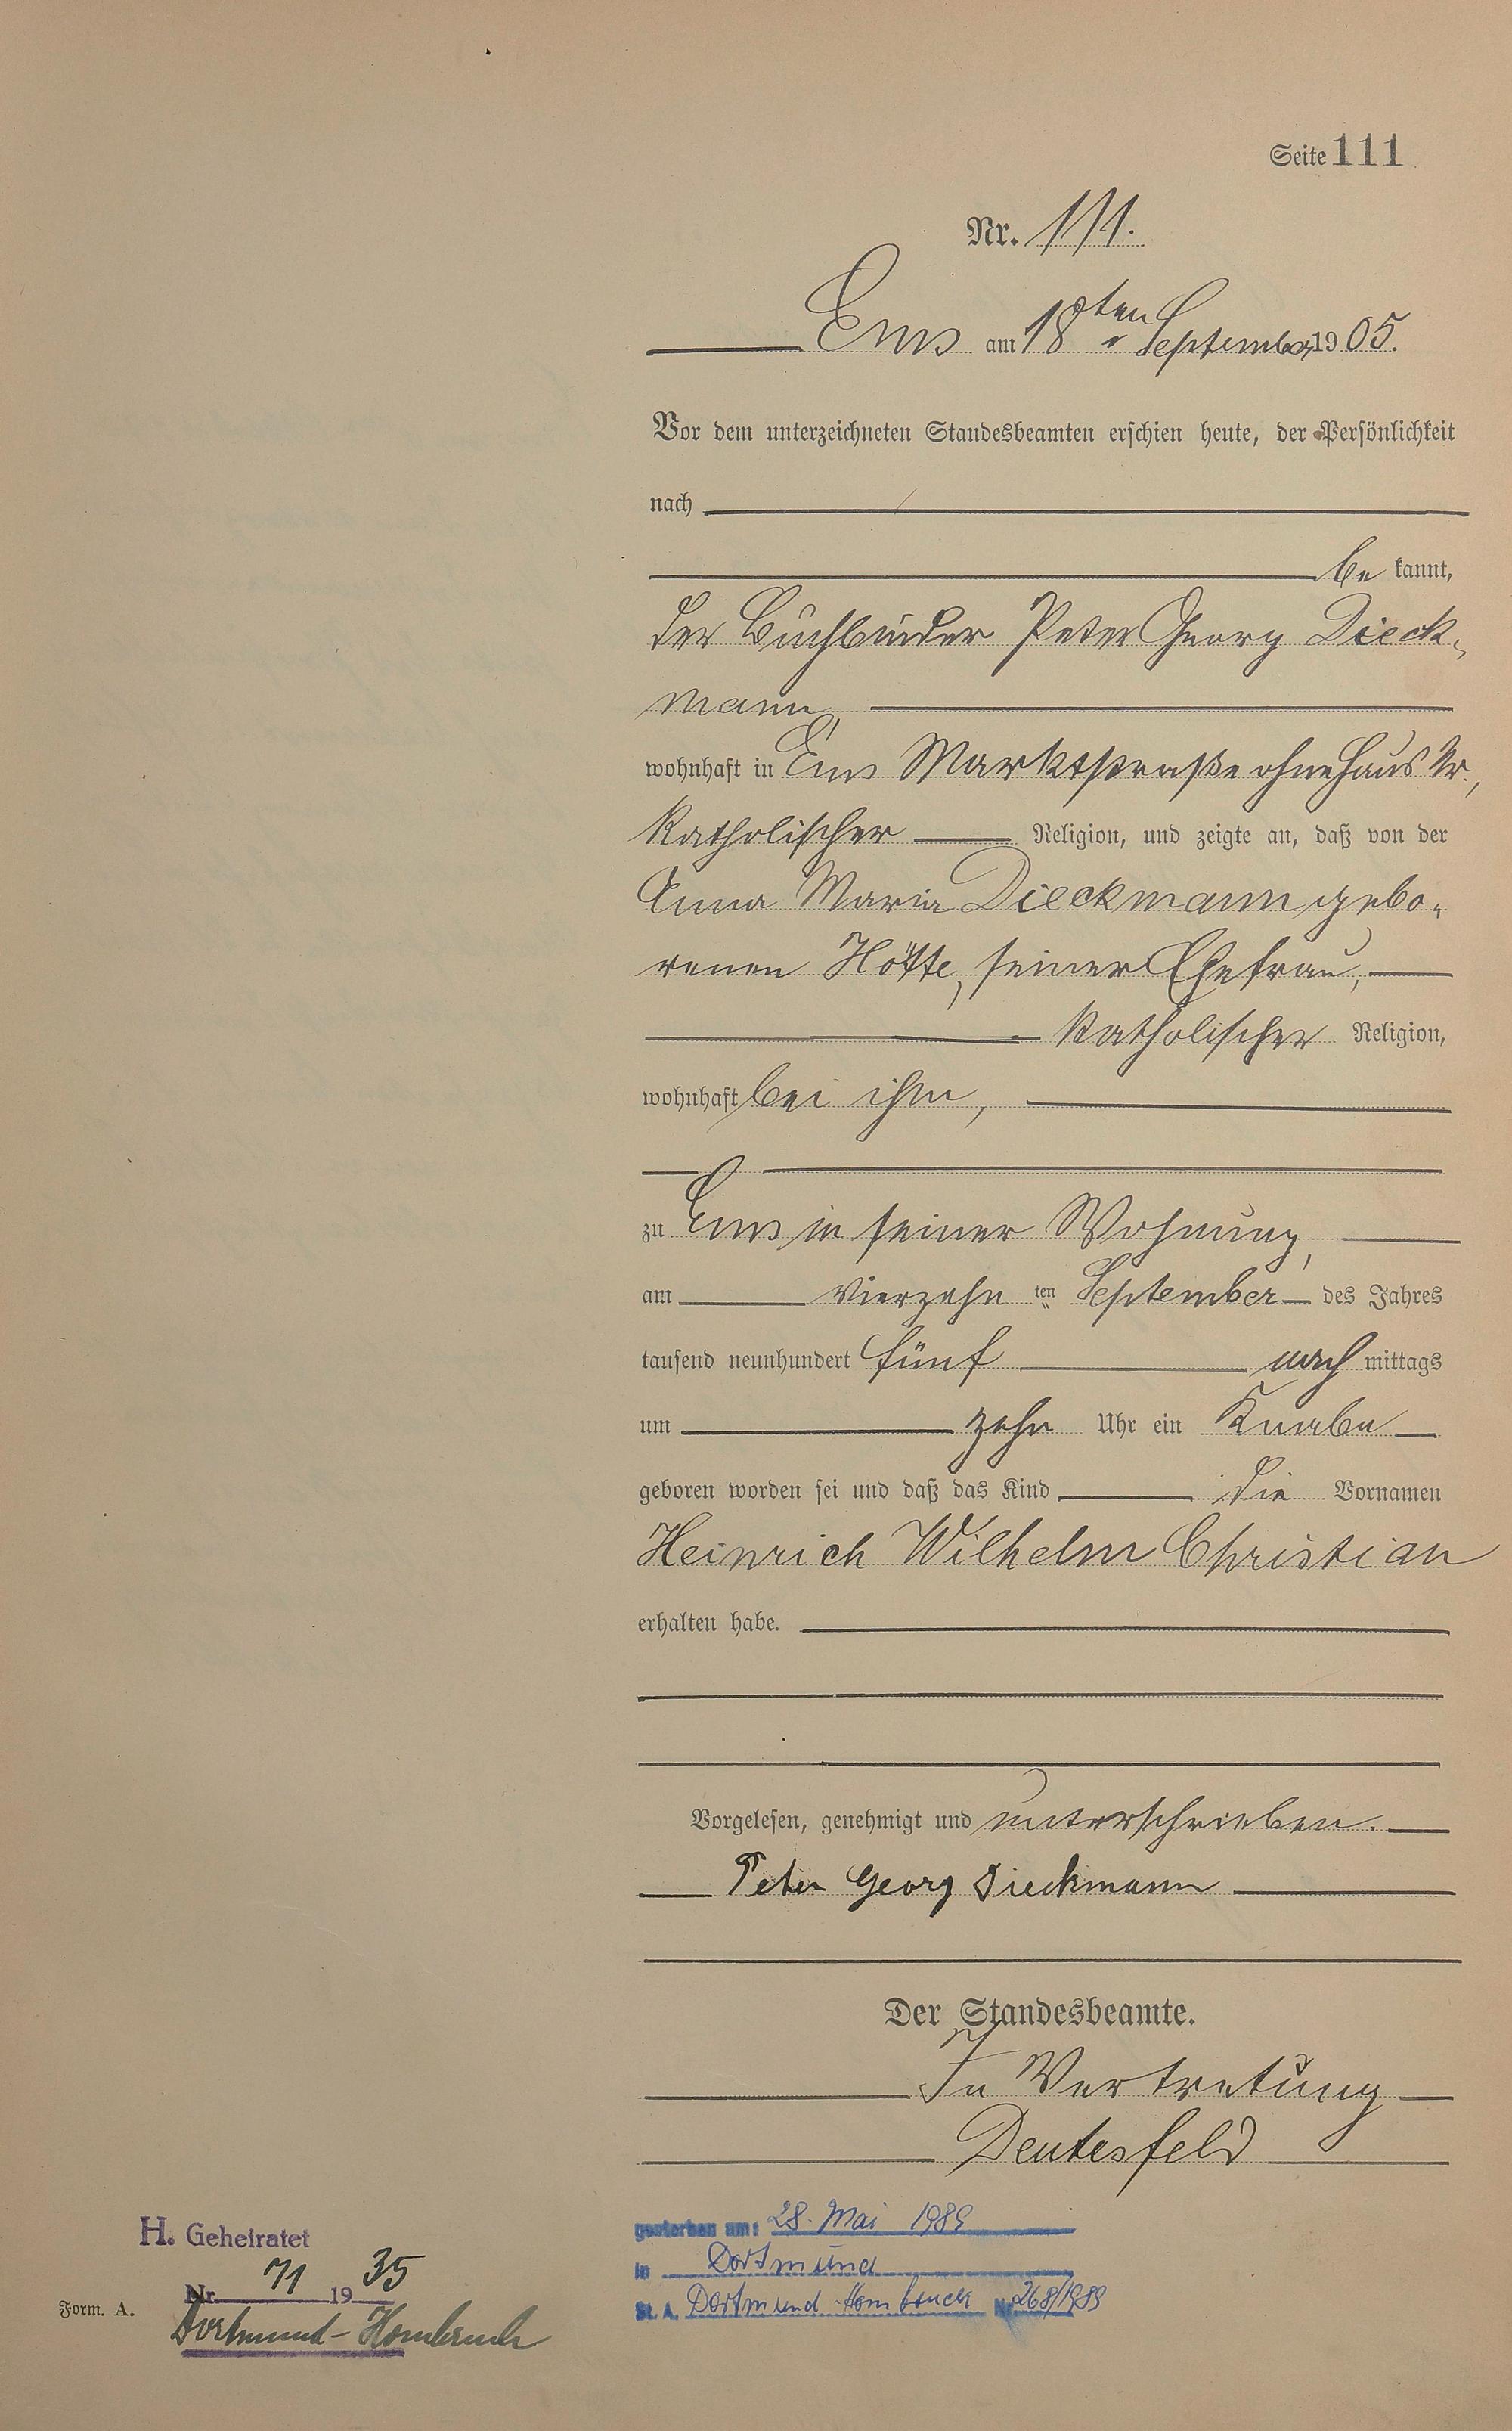 Seite 111
Nr. 111.
Ems am 18ten September 1905.
Vor dem unterzeichneten Standesbeamten erschien heute, der Persönlichkeit
nach
be kannt,
der Buchbinder Peter Georg Dieck-
mann,
wohnhaft in Ems Marktstraße ohne Haus Nr.,
katholischer Religion, und zeigte an, daß von der
Anna Maria Dieckmann gebo-
renen Hötte, seiner Ehefrau,
katholischer Religion,
wohnhaft bei ihm,
zu Ems in seiner Wohnung,
am vierzehn ten September des Jahres
tausend neunhundert fünf nach mittags
um zehn Uhr ein Knabe
geboren worden sei und daß das Kind die Vornamen
Heinrich Wilhelm Christian
erhalten habe.
Vorgelesen, genehmigt und unterschrieben.
Peter Georg Dieckmann
Der Standesbeamte.
In Vertretung
Deutesfeld
H. Geheiratet
Nr. 71 1935
Dortmund-Hombruch
Form. A.
gestorben am: 28. Mai 1989
in Dortmund
St. A. Dortmund-Hombruch Nr. 268/1989